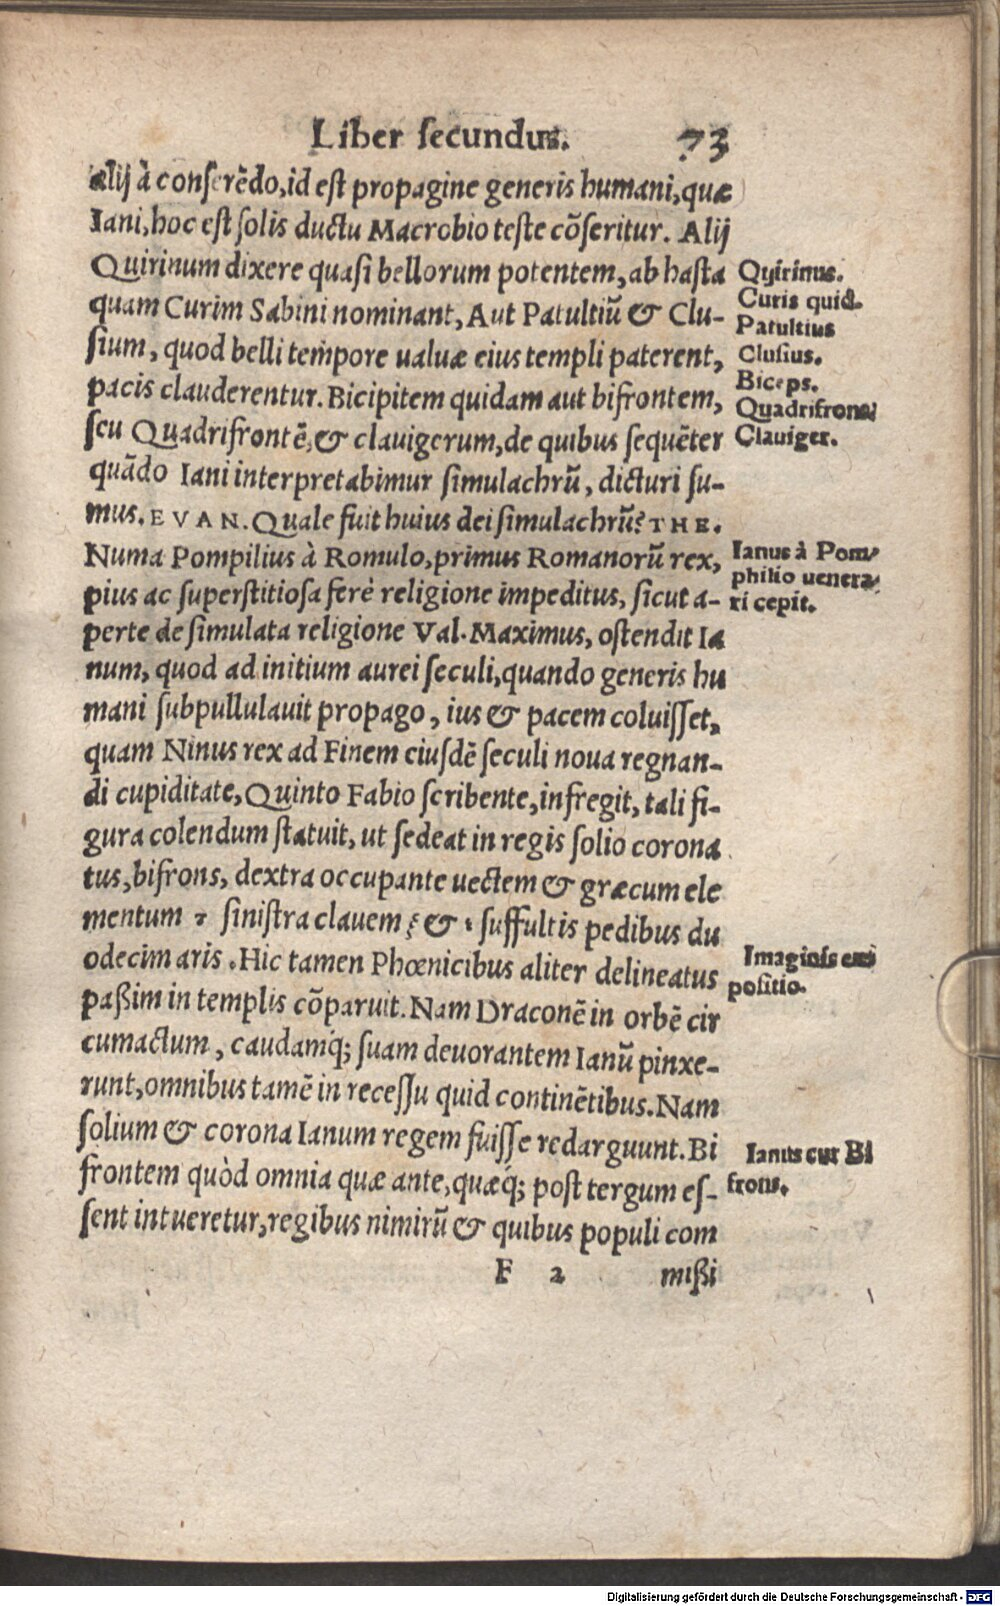 Liber secundus. 73
alij à conserēdo, id est propagine generis humani, quæ
Iani, hoc est solis ductu Macrobio teste cōseritur. Alij
Quirinum dixere quasi bellorum potentem, ab hasta
quam Curim Sabini nominant, Aut Patultiū & Clu-
sium, quod belli tempore ualuæ eius templi paterent,
pacis clauderentur. Bicipitem quidam aut bifrontem,
seu Quadrifrontē, & clauigerum, de quibus sequēter
quādo Iani interpretabimur simulachrū, dicturi su-
mus. EVAN. Quale fuit huius dei simulachrū? THE.
Numa Pompilius à Romulo, primus Romanorū rex,
pius ac superstitiosa ferè religione impeditus, sicut a-
perte de simulata religione Val. Maximus, ostendit Ia
num, quod ad initium aurei seculi, quando generis hu
mani subpullulauit propago, ius & pacem coluisset,
quam Ninus rex ad Finem eiusdē seculi noua regnan-
di cupiditate, Quinto Fabio scribente, infregit, tali fi-
gura colendum statuit, ut sedeat in regis solio corona
tus, bifrons, dextra occupante uectem & græcum ele
mentum τ sinistra clauem ξ & ι suffultis pedibus du
odecim aris. Hic tamen Phœnicibus aliter delineatus
paßim in templis cōparuit. Nam Draconē in orbē cir
cumactum, caudamq́; suam deuorantem Ianū pinxe-
runt, omnibus tamē in recessu quid continētibus. Nam
solium & corona Ianum regem fuisse redarguunt. Bi
frontem quòd omnia quæ ante, quæq́; post tergum es-
sent intueretur, regibus nimirū & quibus populi com
F 2 mißi
Quirinus.
Curis quid.
Patultius
Clusius.
Biceps.
Quadrifrons
Clauiger.
Ianus à Pom
philio uenera
ri cepit.
Imaginis ex
positio.
Ianus cur Bi
frons.
Digitalisierung gefördert durch die Deutsche Forschungsgemeinschaft - DFG